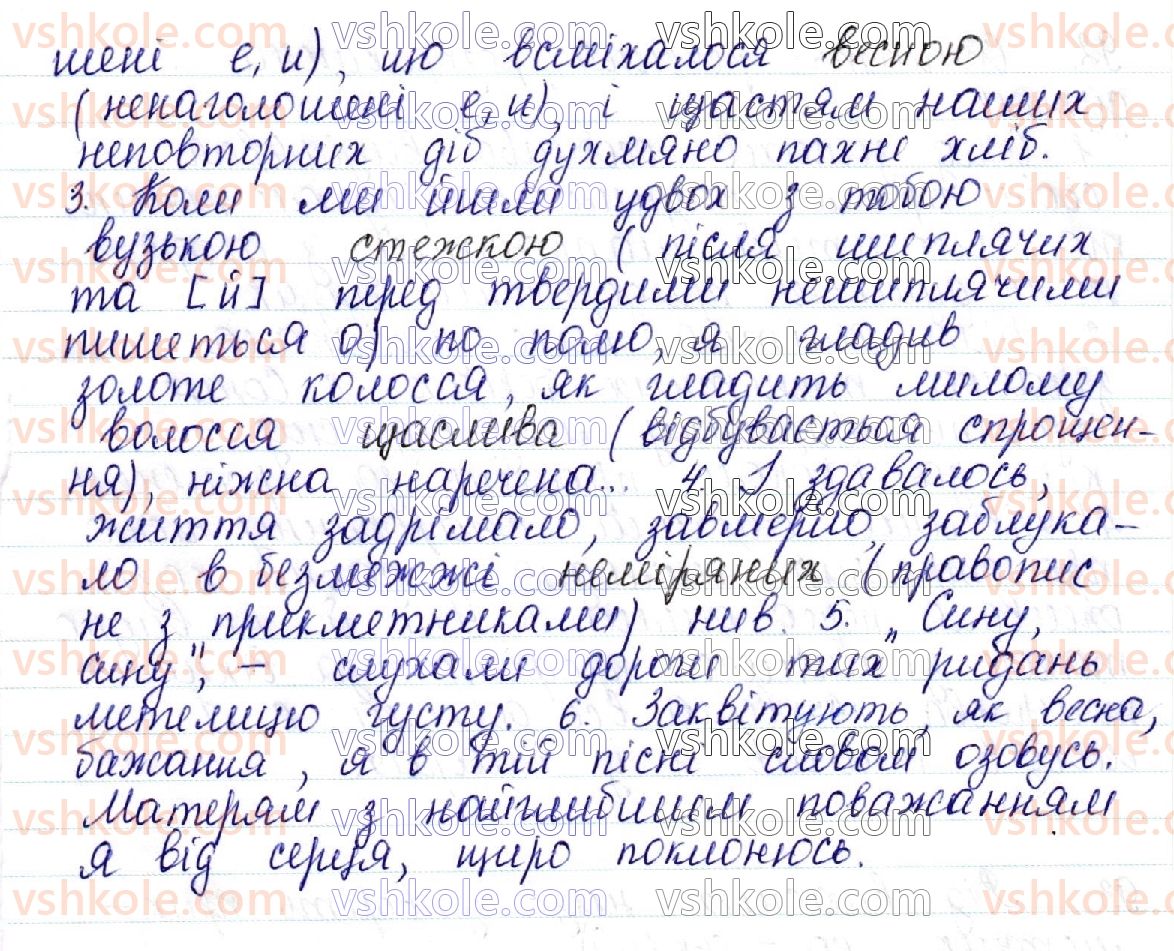 шені е, и), що всміхалося весною
(ненаголошені е, и), і щастям наших
неповторних діб духмяно пахне хліб.
3. Коли ми йшли удвох з тобою
вузькою стежкою (після шиплячих
та [й] перед твердими нешиплячими
пишеться о) по полю, я гладив
золоте колосся, як гладить милому
волосся щаслива (відбувається спрощен-
ня), ніжна наречена... 4. І здавалось,
життя задрімало, завмерло, заблука-
ло в безмежжі неміряних (правопис
не з прикметниками) нив. 5. „Сину,
сину", – слухали дороги тих ридань
метелицю густу. 6. Заквітують, як весна,
бажання, я в тій пісні словом озовусь.
Матерям з найглибшим поважанням
я від серця, щиро поклонюсь.
vshkole.com